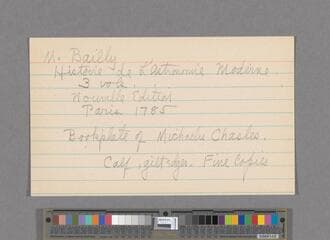 M. Bailly
Histoire de L'Astronomie Moderne.
3 vols.
Nouvelle Edition
Paris 1785
Bookplate of Michaelis Chasles.
Calf, gilt edges. Fine Copies